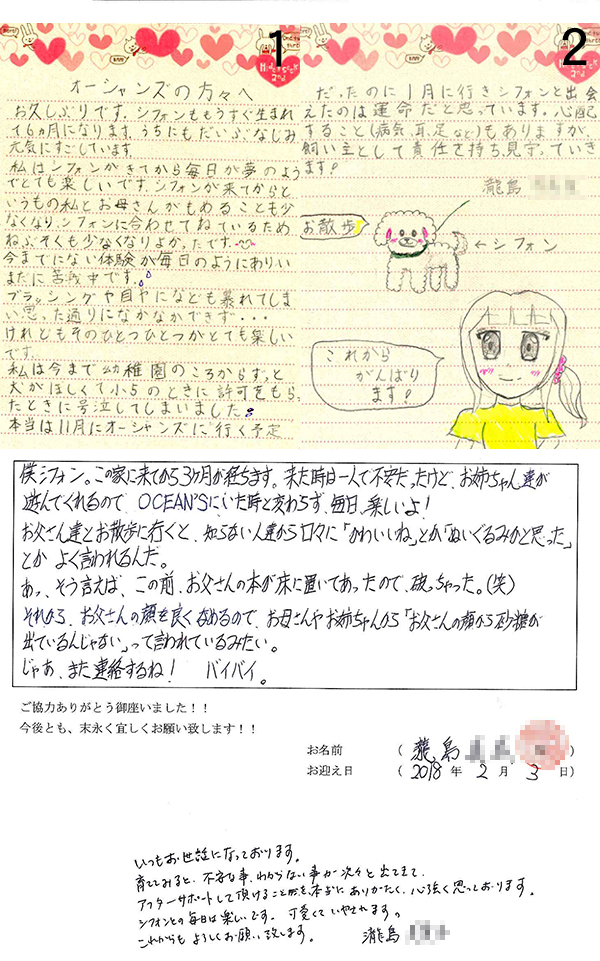 1
オーシャンズの方々へ
お久しぶりです。シフォンももうすぐ生まれ
て6ヵ月になります。うちにもだいぶなじみ
元気にすごしています。
私はシフォンがきてから毎日が夢のよう
でとても楽しいです。シフォンが来てからと
いうもの私とお母さんがもめることも少
なくなり、シフォンに合わせてねているため
ねぶそくも少なくなりよかったです。
今までにない体験が毎日のようにあり、い
まだに苦戦中です。
ブラッシングや目ヤになども暴れてしま
い思った通りになかなかできず・・・
けれどもそのひとつひとつがとても楽しい
です。
私は今まで幼稚園のころからずっと
犬がほしくて小5のときに許可をもらっ
たときに号泣してしまいました。
本当は11月にオーシャンズに行く予定
2
だったのに1月に行きシフォンと出会
えたのは運命だと思っています。心配
すること(病気、耳、足など)もありますが、
飼い主として責任を持ち、見守っていき
ます!
瀧島
お散歩
←シフォン
これから
がんばり
ます!
僕シフォン。この家に来てから3ヶ月が経ちます。来た時は一人で不安だったけど、お姉ちゃん達が
遊んでくれるので、OCEAN'Sにいた時と変わらず、毎日、楽しいよ!
お父さん達とお散歩に行くと、知らない人達から口々に「かわいいね」とか「ぬいぐるみかと思った」
とか よく言われるんだ。
あっ、そう言えば、この前、お父さんの本が床に置いてあったので、破っちゃった。(笑)
それから、お父さんの顔を良くなめるので、お母さんやお姉ちゃんから「お父さんの顔から砂糖が
出ているんじゃない」って言われているみたい。
じゃあ、また連絡するね! バイバイ。
ご協力ありがとう御座いました!!
今後とも、末永く宜しくお願い致します!!
お名前 ( 瀧島 )
お迎え日 ( 2018 年 2 月 3 日)
いつもお世話になっております。
育ててみると、不安な事、わからない事が次々と出てきて、
アフターサポートして頂けること 本当にありがたく、心強く思っております。
シフォンとの毎日は楽しいです。可愛くていやされます。
これからも よろしくお願い致します。 瀧島